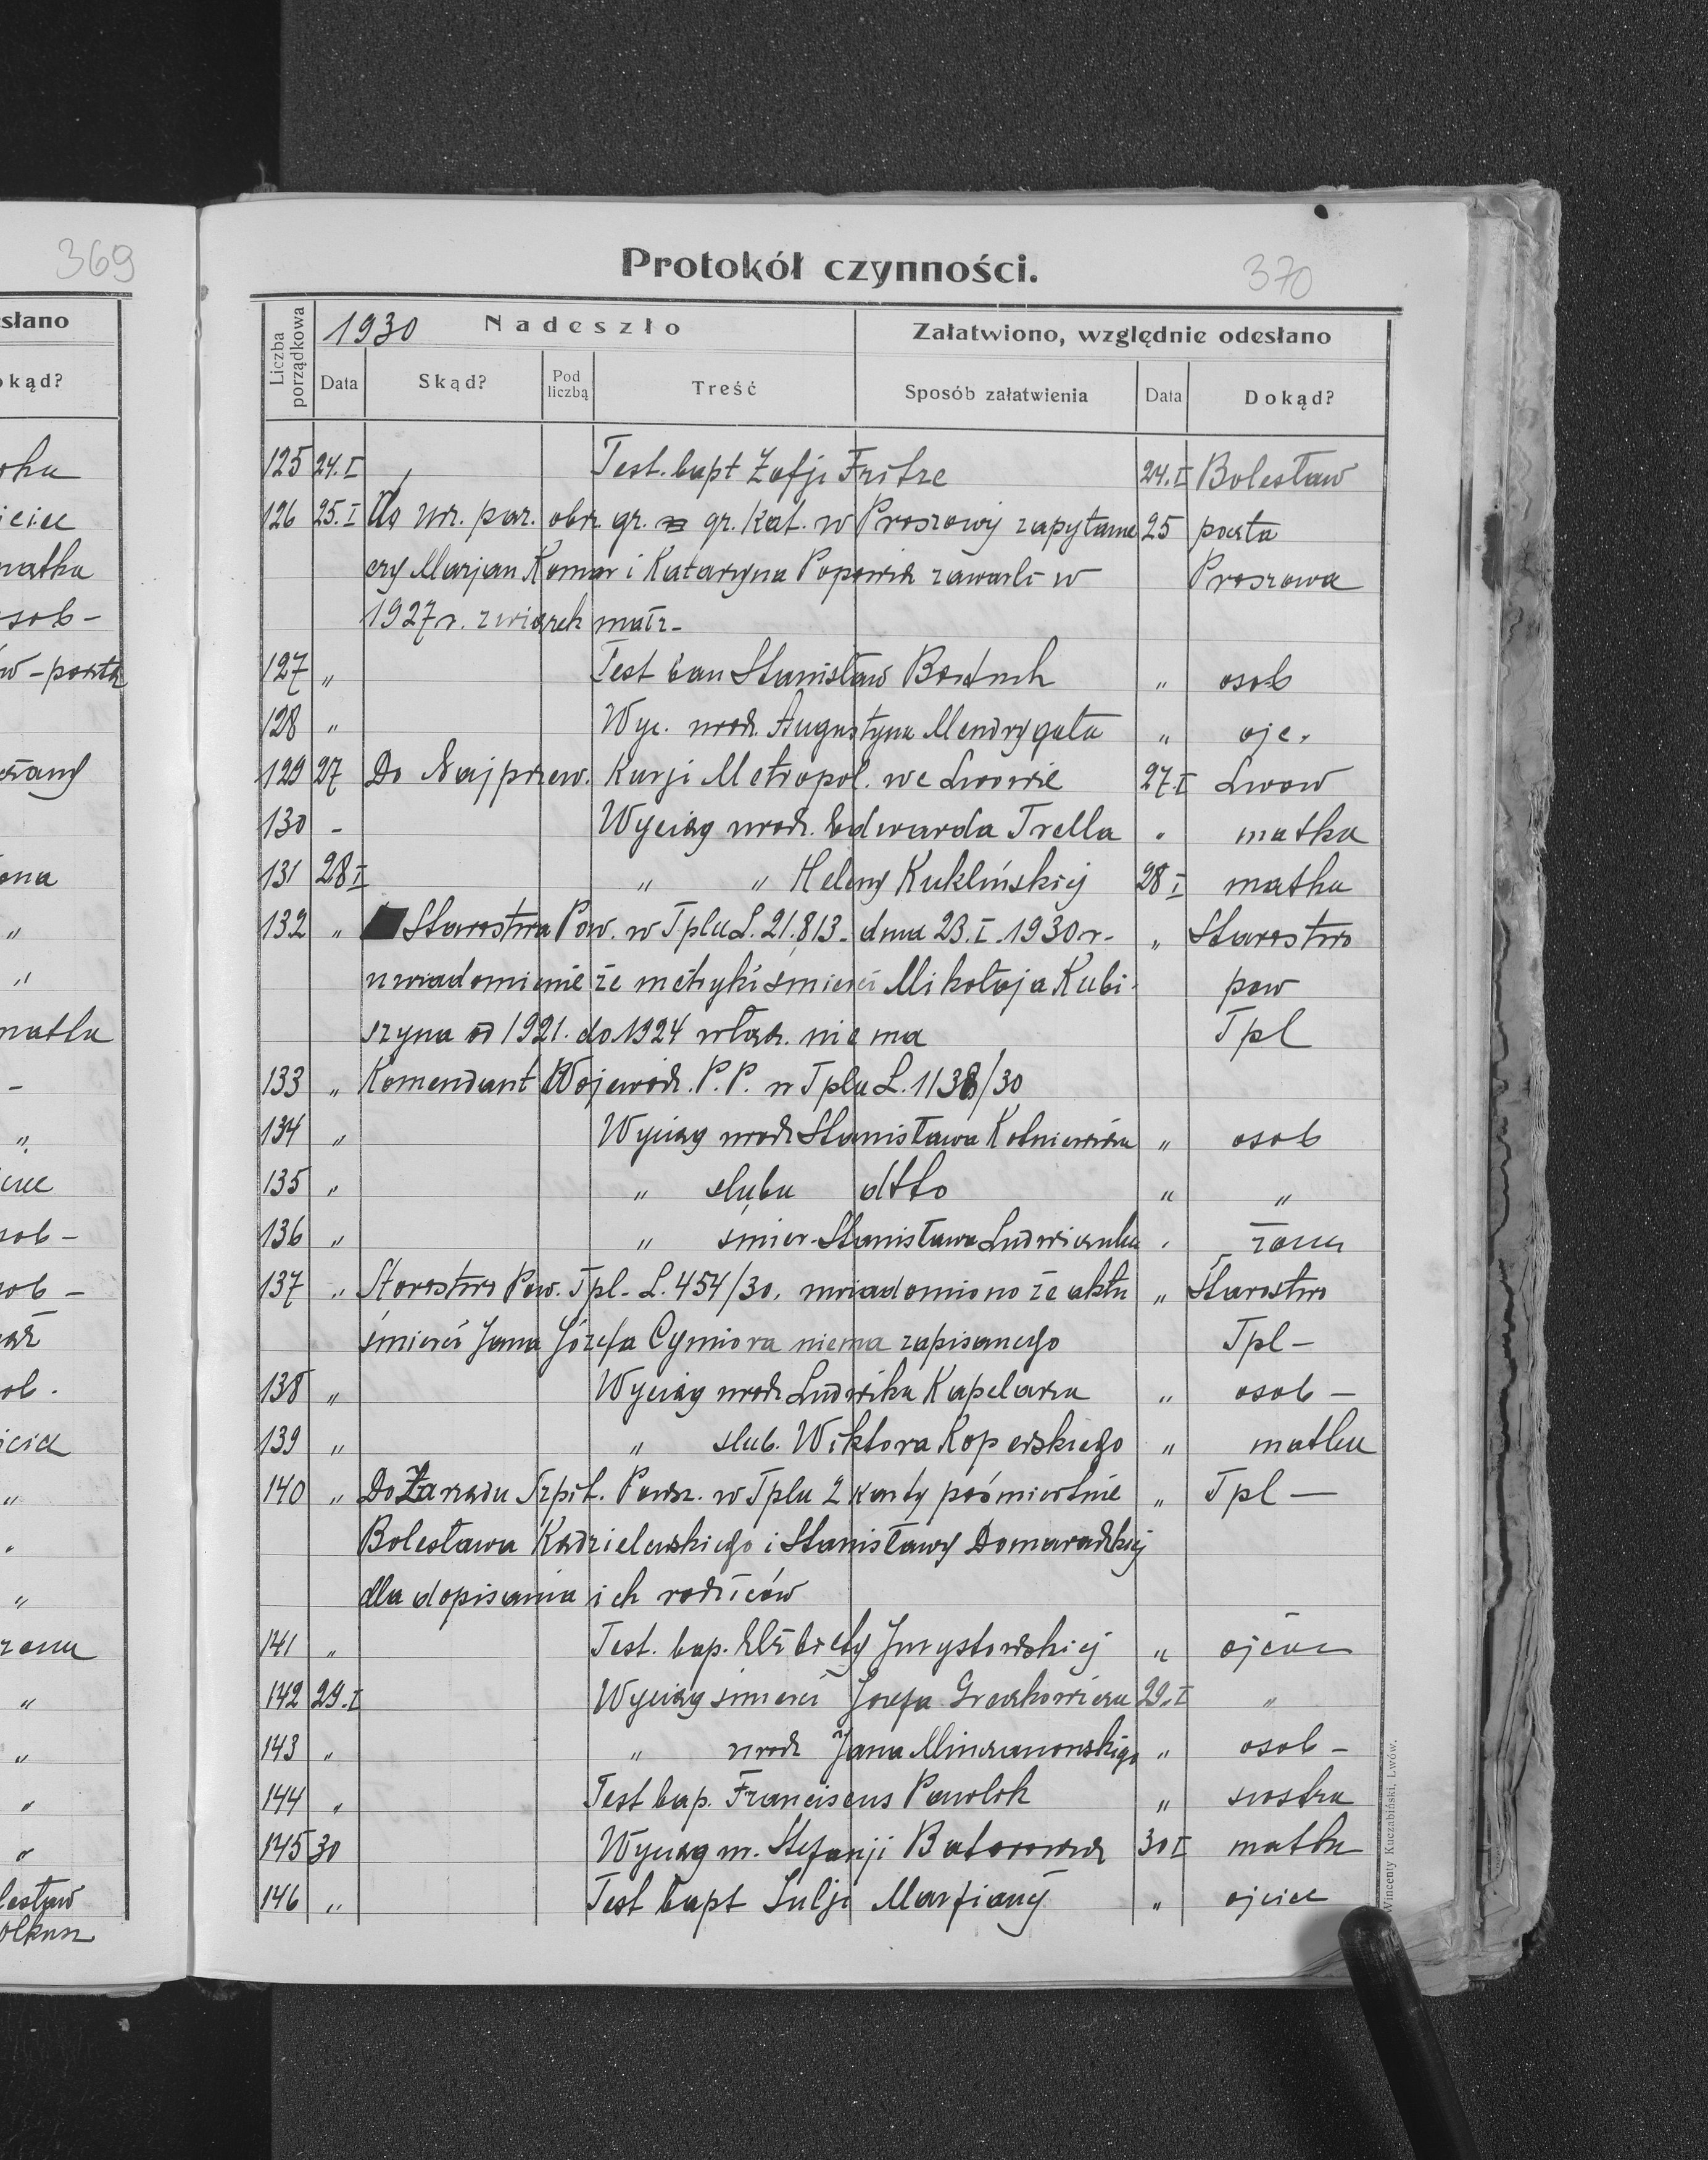 369
słano
okąd?
matka
osob -
żona
"
"
matka
-
"
osob -
"
żona
"
"
"
"
Protokół czynności.
370
Liczba porządkowa
1930 Nadeszło
Załatwiono, względnie odesłano
Data Skąd? Pod liczbą Treść Sposób załatwienia Data Dokąd?
125 24.I Test. bapt Zofji Fritze 24.I Bolesław
126 25.I Do Urz. par. obrz. gr. gr. kat. w Proszowej zapytanie 25 poczta
czy Marjan Komar i Katarzyna Popowicz zawarli w Proszowa
1927 r. związek małż-
127 " Test bap Stanisław " osob
128 " Wyc. urodz. Augustyna Mendrygała " ojc.
129 27 Do Najprzew. Kurji Metropol. we Lwowie 27.I Lwow
130 - Wyciąg urodz. Edwarda Trella " matka
131 28 I " " Heleny Kuklińskiej 28 I matka
132 " Starostwa Pow. w Tplu L. 21.813. dnia 23.I.1930 r- " Starostwo
uwiadomienie że metryki śmierci Mikołaja Kubi- pow
szyna od 1921. do 1924 włącz. nie ma Tpl
133 " Komendant Wojewódz. P.P. w Tplu L. 1138/30
134 " Wyciąg urodz Stanisława " osob
135 " " ślubu dtto " "
136 " " śmier. Stanisława Ludwiczaka " żona
137 " Starostwo Pow. Tpl- L. 454/30. uwiadomiono że aktu " Starostwo
śmierci Jana Józefa Cymiora niema zapisanego Tpl-
138 " Wyciąg urodz Ludwika Kapelarza " osob -
139 " " ślub. Wiktora Koperskiego " matka
140 " Do Zarządu Szpit. Powsz. w Tplu 2 karty pośmiertnie " Tpl -
Bolesława Kądzielawskiego i Stanisławy Domaradzkiej
dla dopisania ich rodziców
141 " Test. bap. Elżbiety " ojciec
142 29.I Wyciąg śmierci Józefa Greczkowicza 29.I "
143 " " urodz Jana " osob -
144 " Test bap. Franciscus Pawlok " siostra
145 30 Wyciąg m. Stefanji 30 I matka
146 " Test bapt Julji Marfiany " ojciec
Wincenty Kuczabiński, Lwów.